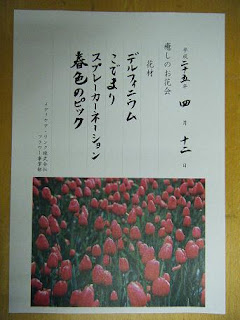 平成二十五年 四月 十二日
癒しのお花会
花材
デルフィニウム
こでまり
スプレーカーネーション
春色のピック
メディカケア・リンク株式会社
フラワー事業部